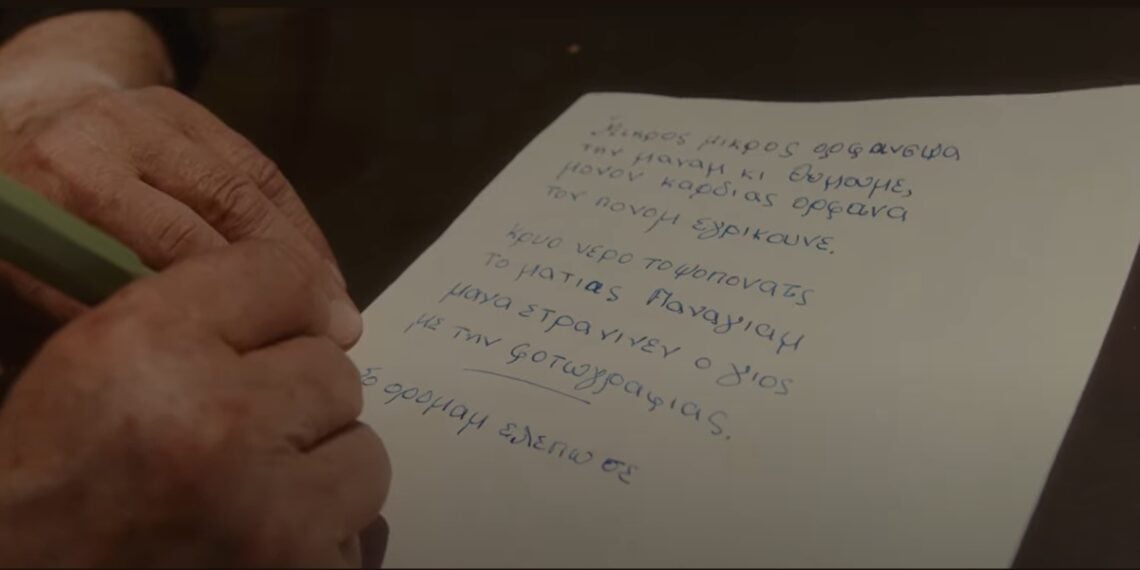 Μικρος μικρος ορφανεψα
την μαναμ κι θυμουμε,
μονον καρδιας ορφανα
τον πονομ εγρικουνε.
κρυο νερο τοψοπονατς
το ματιας Παναγιαμ
μανα ετρανινεν ο γιος
με την φοτωγραφιας.
ορομαμ ελεπω σε